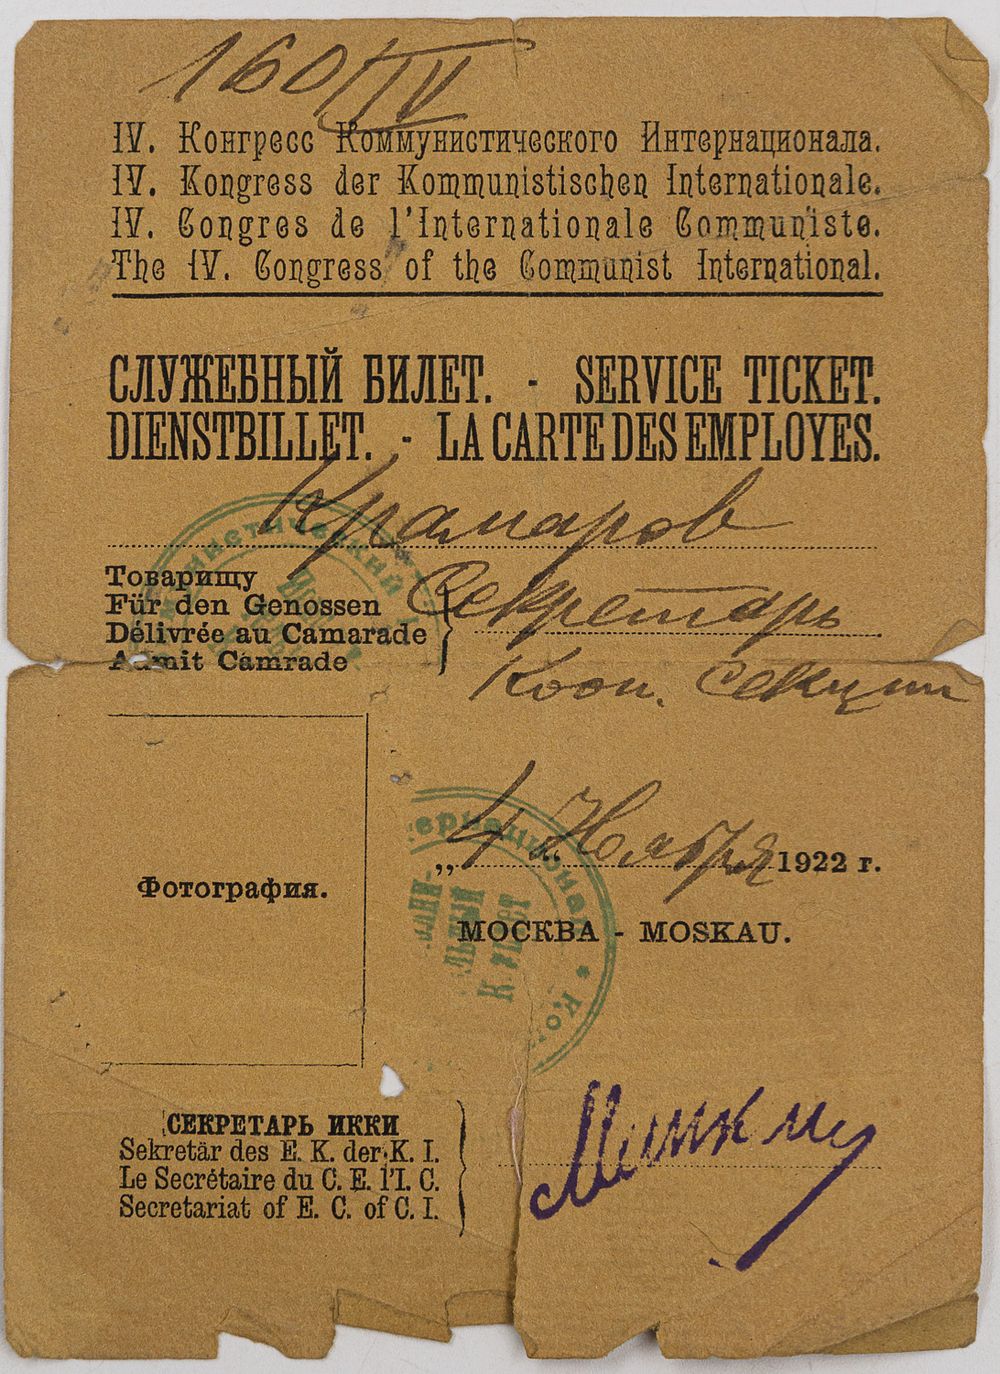 160/IV
IV. Конгресс Коммунистического Интернационала.
IV. Kongress der Kommunistischen Internationale.
IV. Congres de l'Internationale Communiste.
The IV. Congress of the Communist International.
СЛУЖЕБНЫЙ БИЛЕТ. - SERVICE TICKET.
DIENSTBILLET. - LA CARTE DES EMPLOYES.
Крамаров
Товарищу
Für den Genossen
Délivrée au Camarade
Admit Camrade
Секретарь
Кооп. секции
„4“ Ноября 1922 г.
Фотография.
МОСКВА - MOSKAU.
СЕКРЕТАРЬ ИККИ
Sekretär des E. K. der K. I.
Le Secrétaire du C. E. l'I. C.
Secretariat of E. C. of C. I.